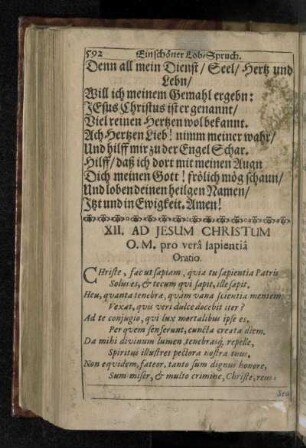 592 Ein schöner Lob-Spruch.
Denn all mein Dienst / Seel / Hertz und
Lebn /
Will ich meinem Gemahl ergebn:
JEsus Christus ist er genannt /
Viel reinen Hertzen wol bekannt.
Ach Hertzen Lieb! nimm meiner wahr /
Und hilff mir zu der Engel Schar.
Hilff / daß ich dort mit meinen Augn
Dich meinen Gott! frölich mög schaun /
Und lobend einen heilgen Namen /
Jtzt und in Ewigkeit. Amen!
XII. AD JESUM CHRISTUM
O. M. pro verâ sapientiâ
Oratio.
CHriste, fac ut sapiam, quia tu sapientia Patris
Solus es, & tecum qui sapit, ille sapit.
Heu, quanta tenebræ, quàm vana scientia mentem
Vexat, quis veri dulce docebit iter?
Ad te confugio, qui lux mortalibus ipse es,
Per quem senserunt, cuncta creata diem.
Da mihi divinum lumen tenebrasq; repelle,
Spiritus illustret pectora nostra tuus,
Non equidem, fateor, tanto sum dignus honore,
Sum miser, & multo crimine, Christe, reus.